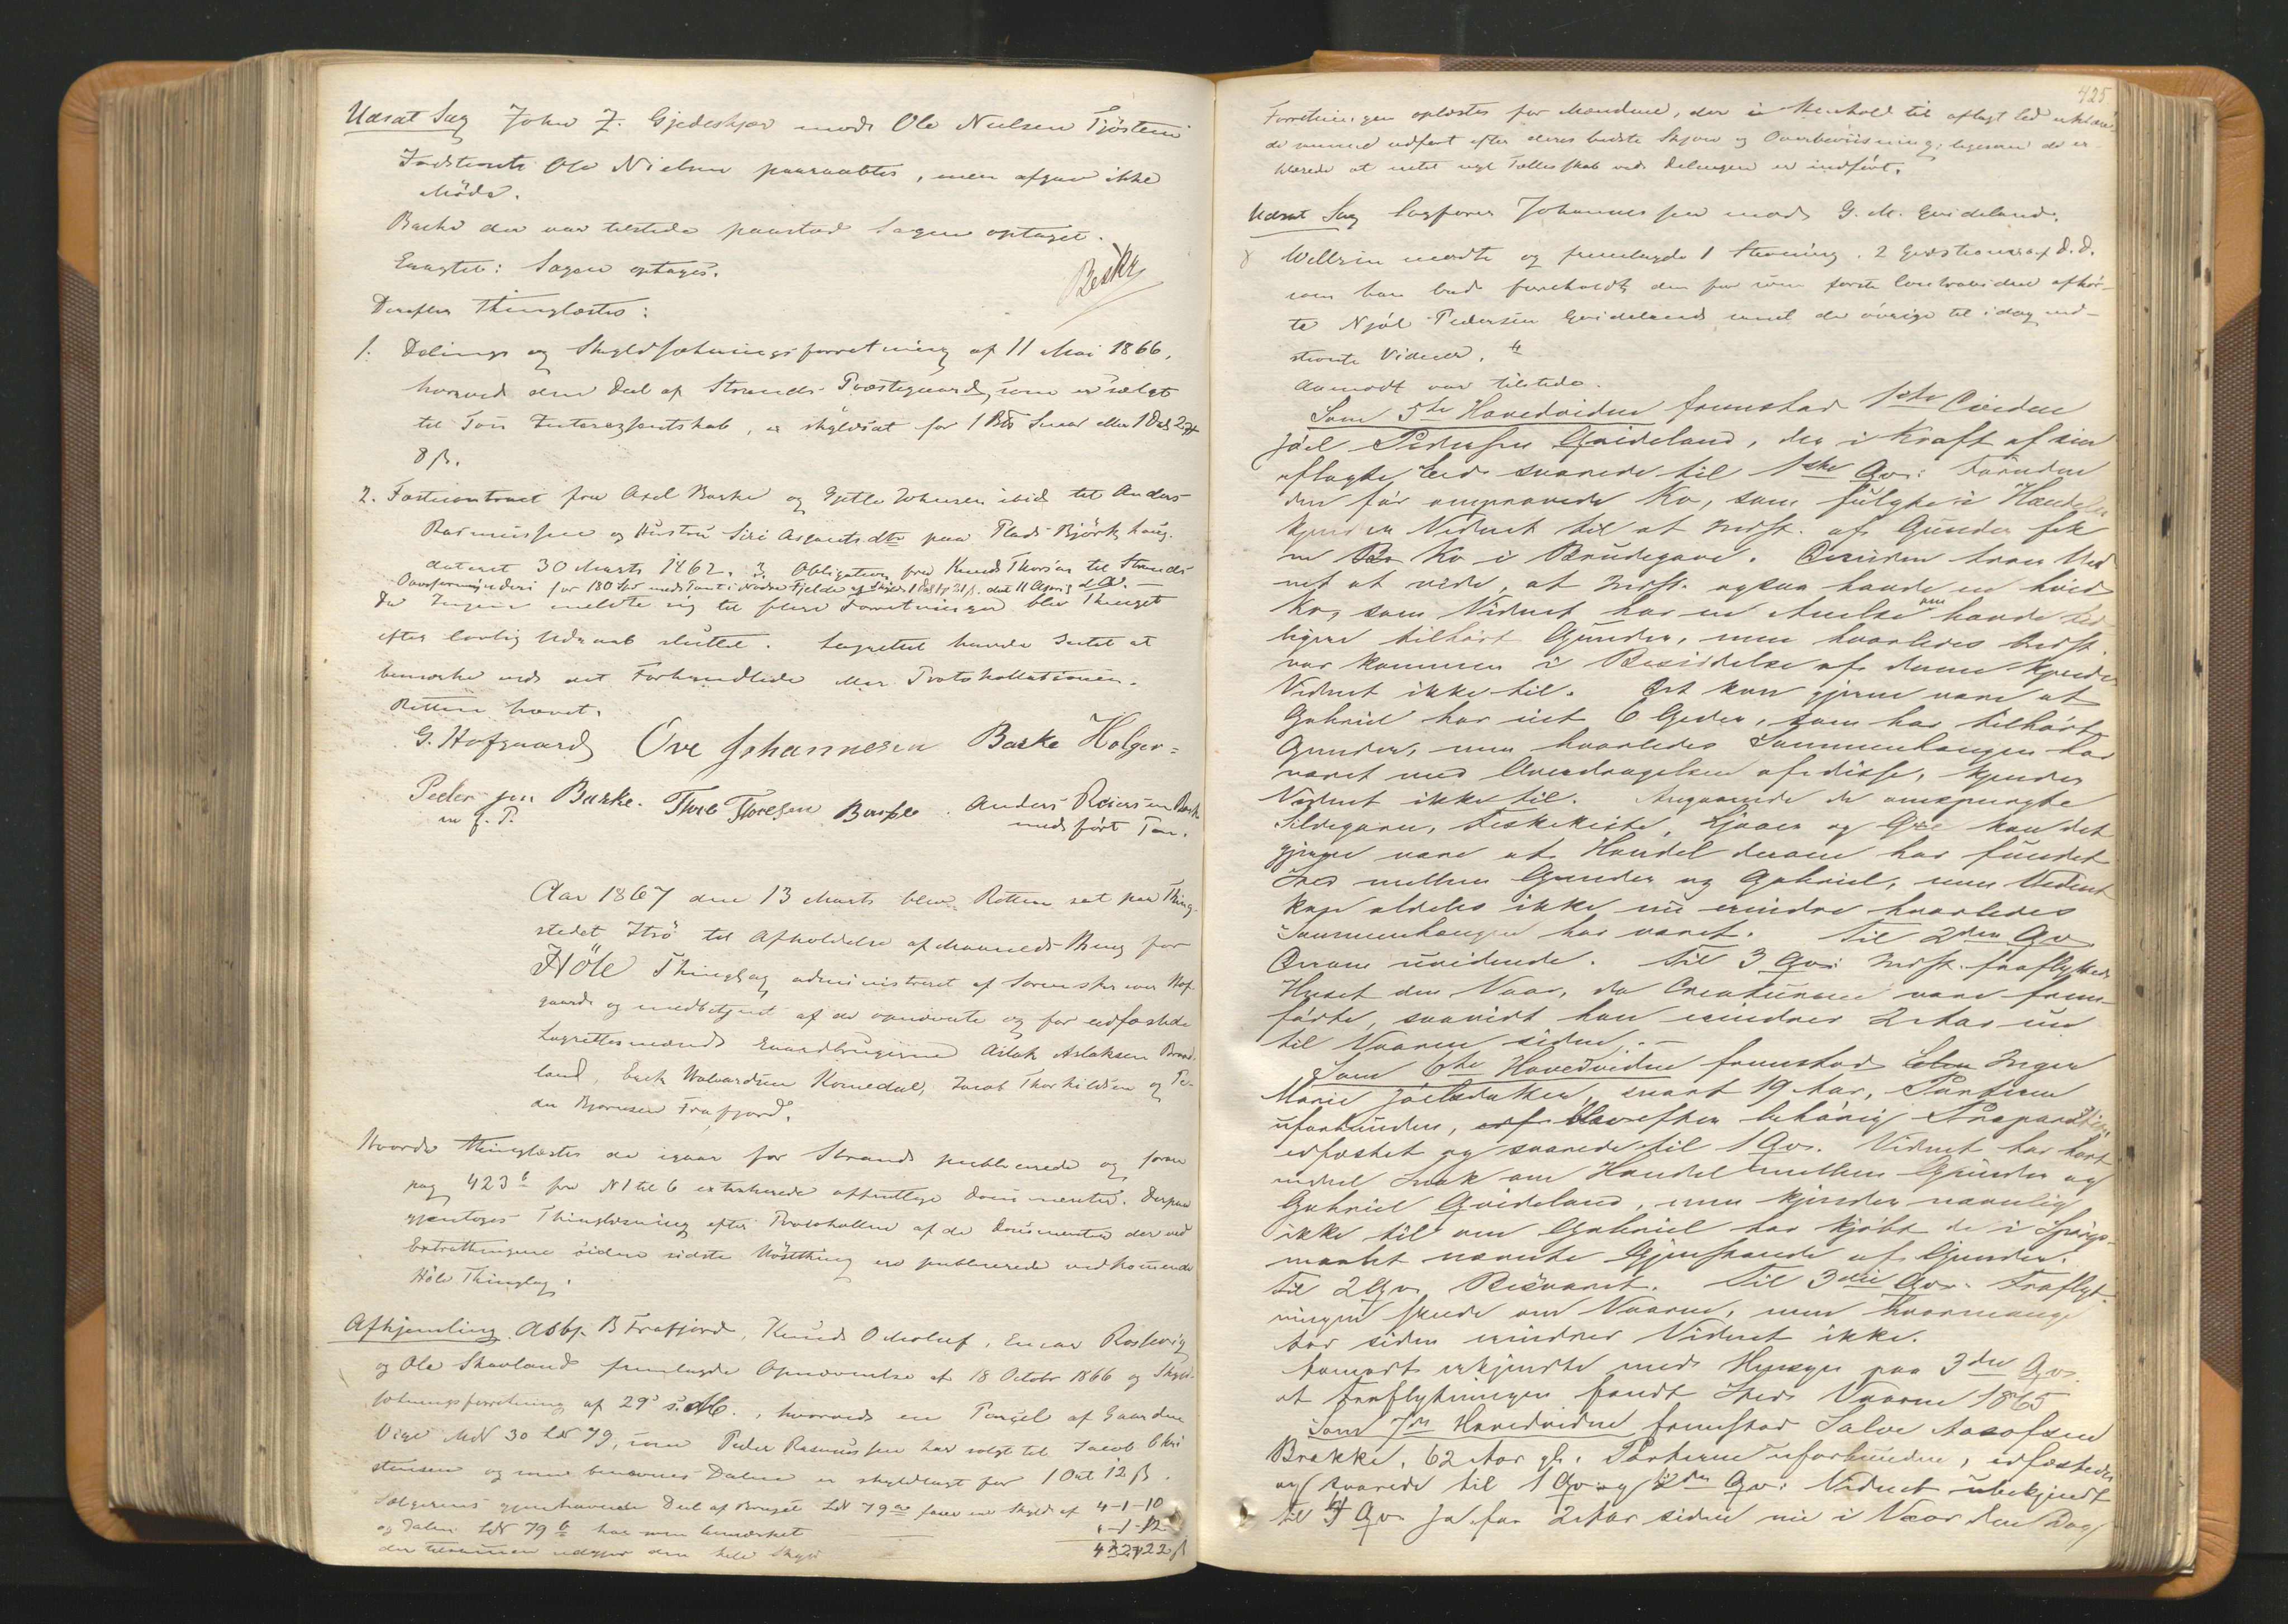 Udsat Sag John J. Gjedeskjær mod Ole Nielsen Tjöstem
Indstevnte Ole Nielsen paaraabtes, men afgav ikke
Möde.
Barke der var tilstede paastod Sagen optaget.
Eragtet: Sagen optages.
Barke
Derefter Thinglæstes:
1. Delings og Skyldsætningsforretning af 11 Mai 1866,
hvorved den Deel af Strands Præstegaard, som er solgt
til Tous Interessentskab, er skyldsat for 1 Smør eller 1 Dal 2
8 ß.
2. Fæstecontract fra Axel Barke og ibid til Anders
Rasmussen og Hustru Siri Asgautsdtr paa Plads Björkhaug
dateret 30 Marts 1862. 3. Obligation fra Knud Thorsen til Strands
Overformynderi for 180 Spd med Pant i Nedre Fjelde dat 11 April d.A.
Da Ingen meldte sig til flere Forretninger blev Thinget
efter lovlig Udraab sluttet. Lagrettet havde Intet at
bemærke ved det Forhandlede eller Protokollationen.
Retten hævet.
G. Hofgaard Ove Johannesen Barke Holger=
Peder sen Barke. Thore Thoresen Barke. Anders Reiersen Barke
m. f. P. medført Pen.
Aar 1867 den 13 Marts blev Retten sat paa Thing-
stedet Itsö til Afholdelse af Maaneds Thing for
Höle Thinglag administreret af Sorenskriver Hof-
gaard og medbetjent af de opnævnte og før edfæstede
Lagrettesmænd Gaardbrugerne Aslak Aslaksen Brand-
land, Erik Halvardsen Komedal, Jacob Thorkildsen og Pe-
der Bjørnsen Frafjord.
Hvorda thinglæstes de igaar for Strand publicerede og foran
pag 423 b fra N 1 til 6 extraherede offentlige Documenter. Derpaa
gjentoges Thinglæsning efter Protokollen af de Documenter der ved
Extrathingene siden sidste Hösthing ere publicerede vedkommende
Höle Thinglag.
Afhjemling. Asbj. B Frafjord, Knud O Molauf, Einar Roslevig
og Ole Skavland fremlagde Opnævnelse af 18 Octobr 1866 og Skyld-
sætningsforretning af 29 s. M., hvorved en Parcel af Gaarden
Vige M N 30 L N 79, som Peder Rasmussen har solgt til Jacob Chri
stensen og som benævnes Dalen er skyldlagt for 1 Ort 12 ß.
Sælgerens gjenhavende Deel af Bruget L N 79 a faaer en Skyld af 4-1-10
og Dalen L N 79 b har som bemærket -1-12
der tilsammen udgjør den hele Skyld 4 2 22 ß
425
Forretningen oplæstes for Mændene, der i Henhold til aflagt Eed erklære-
de samme udført efter deres bedste Skjøn og Overbeviisning; ligesom de er-
klærede at intet nyt Fællesskab ved Delingen er indført.
Udsat Sag Sagfører Johannessen mod G. M. Gvideland.
Wellzin mødte og fremlagde 1 Stevning. 2 Qvæstioner af D.D.
som han bad foreholdt den før som første Contravidne afhør-
te Njöl Pedersen Gvideland samt de övrige til idag ind-
stevnte Vidner.
Aamodt var tilstede.
Som 5te Hovedvidne fremstod 1ste Cvidne
Jöel Pedersen Qvideland, der i Kraft af sin
aflagte Eed svarede til 1ste Qv: Foruden
den för omprovede Ko, som fulgte i Handelen
kjender Vidnet til at Indst. af Gunder fik
en Ko i Brudegave. Desuden troer Vid
net at vide, at Indst. ogsaa havde en hvid
Ko, som Vidnet har en Anelse om havde tid
ligere tilhört Gunder, men hvorledes Indst.
var kommen i Besiddelse af denne kjender
Vidnet ikke til. Det kan gjerne være at
Gabriel har eiet 6 Geder, som har tilhört
Gunder, men hvorledes Sammenhængen har
været med Overdragelsen af disse, kjender
Vidnet ikke til. Angaaende de omspurgte
Sildegarn, Fiskekiste, Ljaaer og Gre kan det
gjerne være at Handel derom har fundet
Sted mellem Gunder og Gabriel, men Vidnet
kan aldeles ikke nu erindre hvorledes
Sammenhængen har været. Til 2den Qv
Derom uvidende. Til 3 Qv: Indst. fraflyttede
Huset den Vaar, da Creaturene vare frem-
förte, saavidt han erindrer 2 Aar nu
til Vaaren siden.-
Som 6te Hovedvidne fremstod Inger
Marie Jöelsdatter, snart 19 Aar, Parterne
uforbunden, blev efter behörig Præparation
edfæstet og svarede til 1 Qv. Vidnet har hört
endeel Snak om Handel mellem Gunder og
Gabriel Qvideland, men kjender navnlig
ikke til om Gabriel har kjöbt de i Spörgs-
maalet nævnte Gjenstande af Gunder.
Til 2 Qv. Besvaret. Til 3die Qv. Fraflyt-
ningen skede om Vaaren, men hvormange
Aar siden erindrer Vidnet ikke.
Aamodt erkjendte med Hensyn paa 3die Qv.
at Fraflytningen fandt Sted Vaaren 1865
Som 7de Hovedvidne fremstod Salve Aasofsen
Brække, 62 Aar gl., Parterne uforbunden, edfæstedes
og svarede til 1 Qv og 2den Qv: Vidnet ubekjendt
til 3 Qv Ja for 2 Aar siden nu i Vaar den Dag